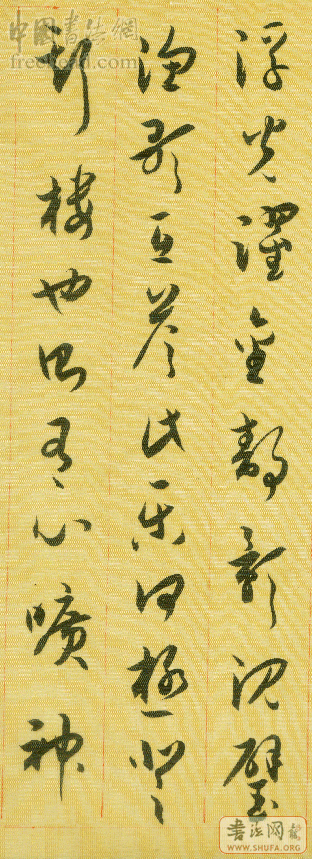 浮光濯金靜影沈璧
漁歌互答此樂何極登
斯樓也則有心曠神
中國書法網
书法网
WWW.SHUFA.ORG